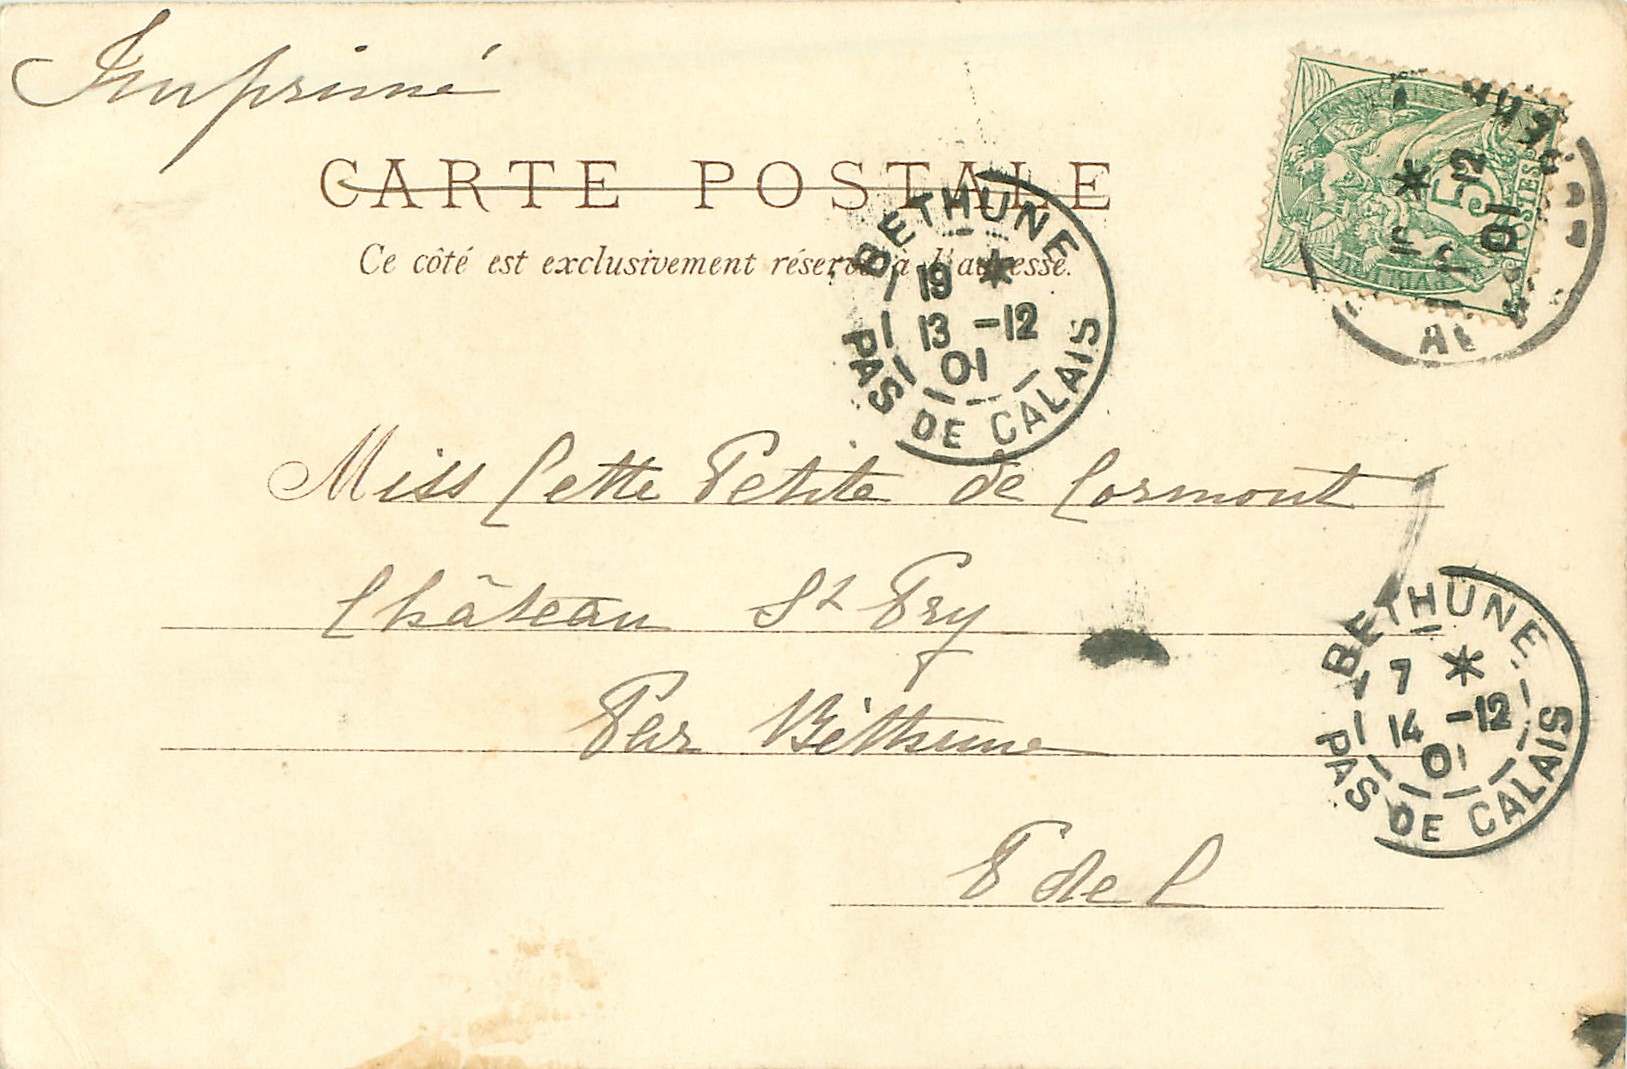 Imprimé
CARTE POSTALE
Ce côté est exclusivement réservé à l'adresse.
BETHUNE
19 *
13 -12
01
PAS DE CALAIS
5
POSTES
*
12
01
Miss Cette Petite de Cormont
Château St Pry
Par Béthune
P de C
BETHUNE
7 *
14 -12
01
PAS DE CALAIS